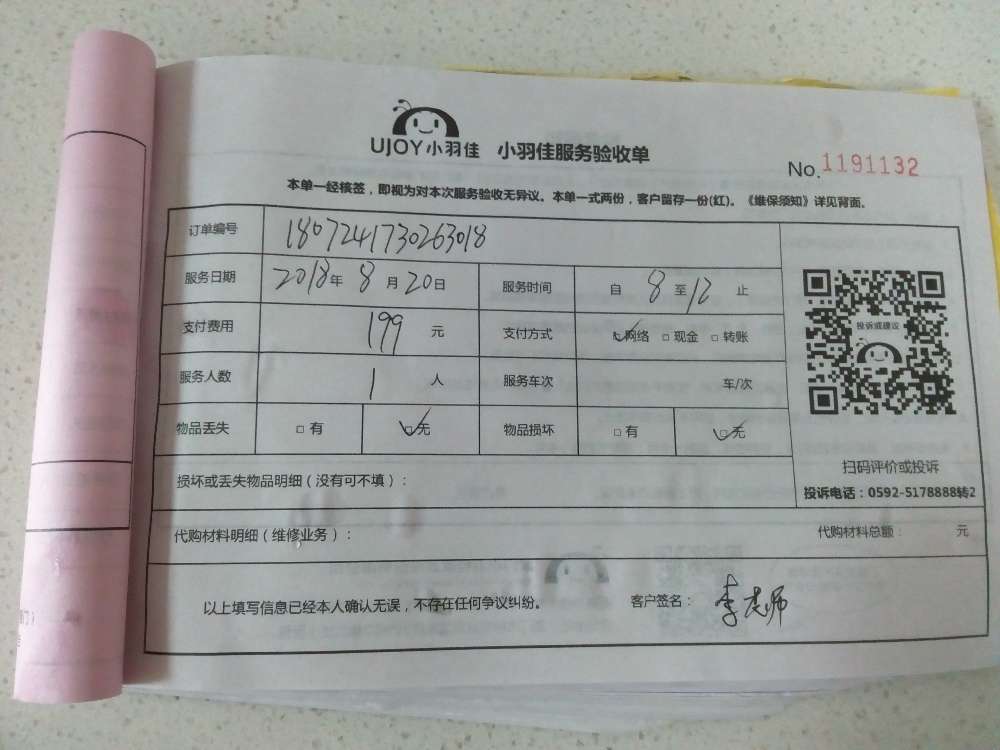 UJOY小羽佳 小羽佳服务验收单
No.1191132
本单一经核签，即视为对本次服务验收无异议。本单一式两份，客户留存一份(红)。《维保须知》详见背面。
订单编号 1807241730263018
服务日期 2018年 8月20日 服务时间 自 8 至 12 止
支付费用 199 元 支付方式 ☑网络 □现金 □转账
服务人数 1 人 服务车次 车/次
物品丢失 □有 ☑无 物品损坏 □有 ☑无
投诉或建议
扫码评价或投诉
投诉电话：0592-5178888转2
损坏或丢失物品明细（没有可不填）：
代购材料明细（维修业务）： 代购材料总额： 元
以上填写信息已经本人确认无误，不存在任何争议纠纷。 客户签名： 李老师